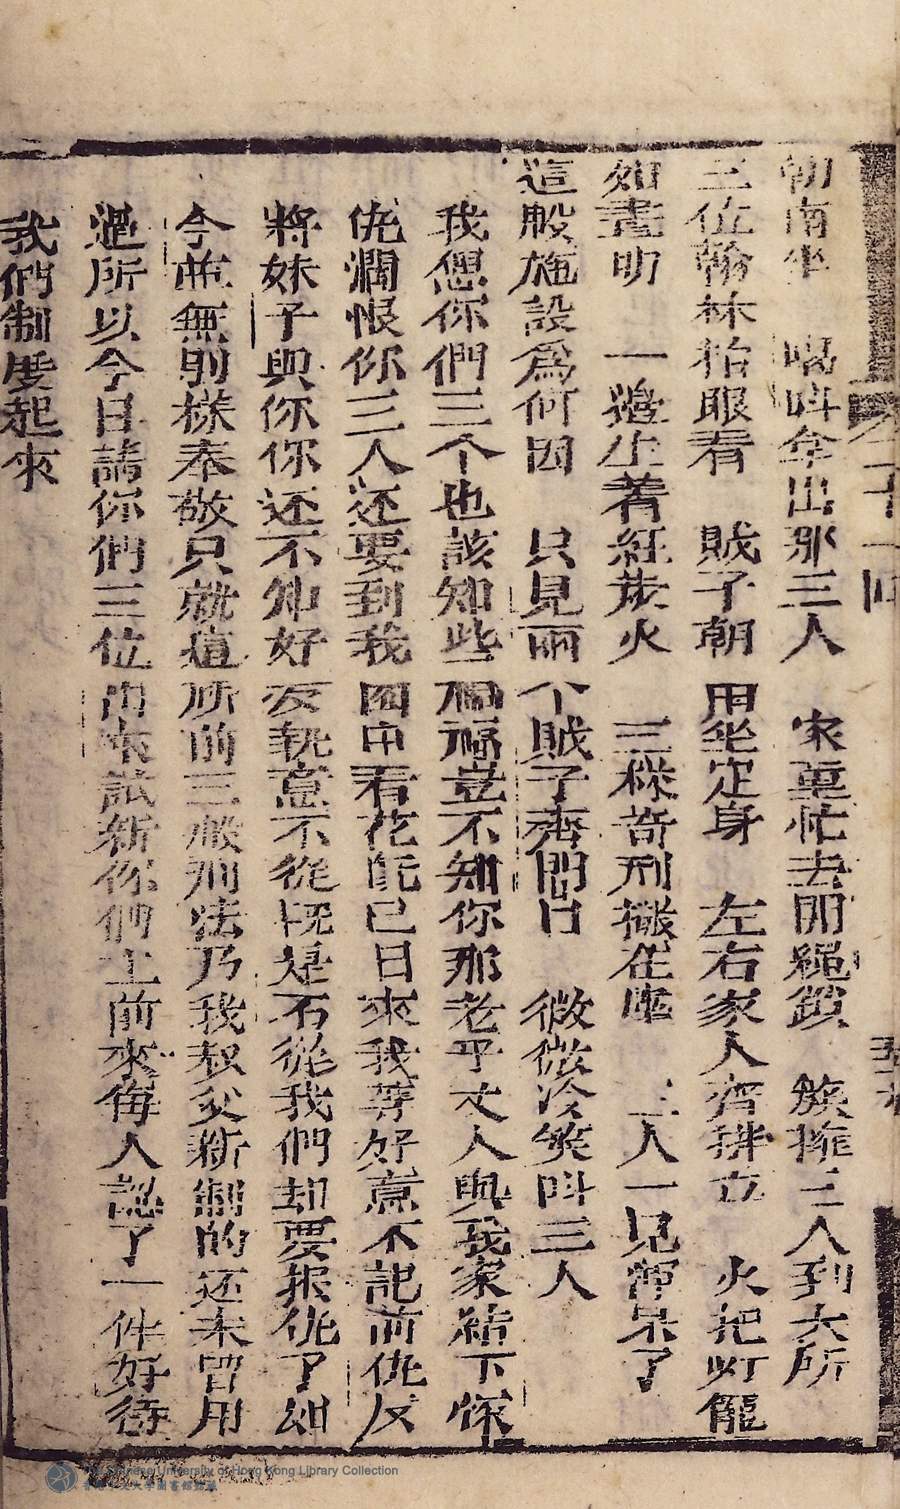 朝南坐 喝呌拿出那三人 家童忙去開繩鎖 簇擁三人到大所
三位翰林抬眼看 賊子朝 用坐定身 左右家人齊排立 火把灯籠
如晝明 一邊生着紅炭火 三樣奇刑擺在 三人一見渾呆了
這般施設爲何因 只見兩个賊子齊問曰 微微冷笑呌三人
我偲你們三个也該知些禍福豈不知你那老平丈人與我家結下深
仇濶恨你三人还要到我园中看花旣已日來我等好意不記前仇反
將妹子與你你还不知好友執意不從旣是不從我們却要报仇了如
今並無别樣奉敬只就這所前三般刑法乃我叔父新制的还未曾用
過所以今日請你們三位出來試新你們上前來每人認了一件好待
我們制度起來
十一回
The Chinese University of Hong Kong Library Collection
香港中文大學圖書館館藏